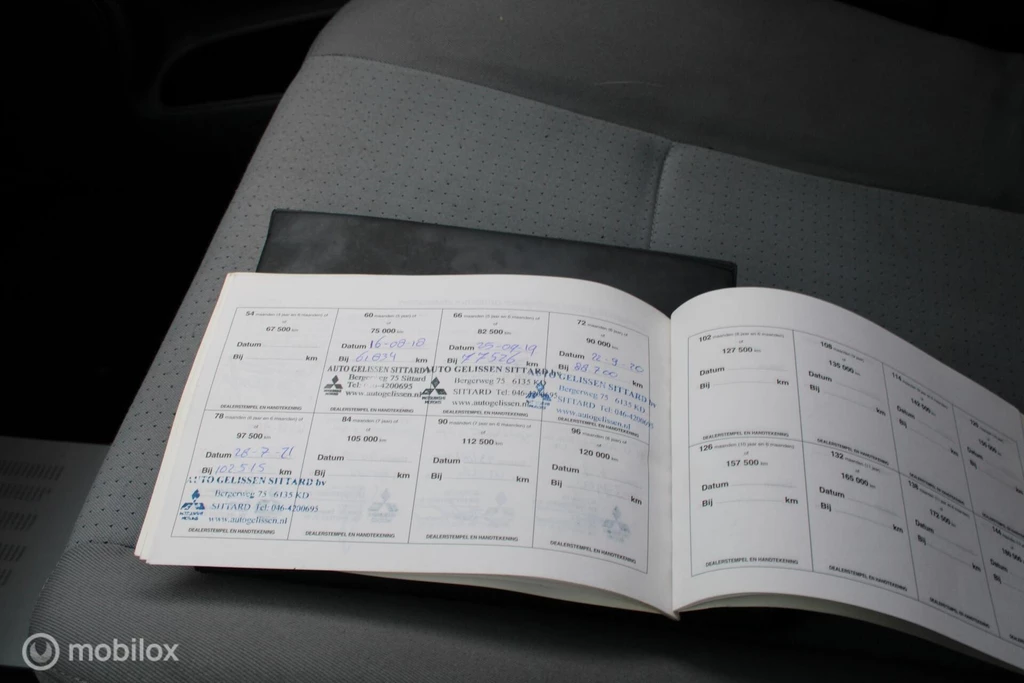 54 maanden (4 jaar en 6 maanden) of
67 500 km
Datum
Bij km
DEALERSTEMPEL EN HANDTEKENING
60 maanden (5 jaar) of
75 000 km
Datum 16-08-18
Bij 61834 km
AUTO GELISSEN SITTARD
Bergerweg 75 Sittard
Tel: -4200695
www.autogelissen.nl
DEALERSTEMPEL EN HANDTEKENING
66 maanden (5 jaar en 6 maanden) of
82 500 km
Datum 25-09-19
Bij 77526 km
AUTO GELISSEN SITTARD bv
Bergerweg 75 6135 KD
SITTARD Tel: 046-
www.autogelissen.nl
DEALERSTEMPEL EN HANDTEKENING
72 maanden (6 jaar) of
90 000 km
Datum 22-9-20
Bij 88700 km
AUTO GELISSEN SITTARD bv
Bergerweg 75 6135 KD
SITTARD Tel: 046-4200695
www.autogelissen.nl
78 maanden (6 jaar en 6 maanden) of
97 500 km
Datum 28-7-21
Bij 102515 km
AUTO GELISSEN SITTARD bv
Bergerweg 75 6135 KD
SITTARD Tel: 046-4200695
www.autogelissen.nl
DEALERSTEMPEL EN HANDTEKENING
84 maanden (7 jaar) of
105 000 km
Datum
Bij km
DEALERSTEMPEL EN HANDTEKENING
90 maanden (7 jaar en 6 maanden) of
112 500 km
Datum
Bij km
DEALERSTEMPEL EN HANDTEKENING
96 maanden (8 jaar) of
120 000 km
Datum
Bij km
DEALERSTEMPEL EN HANDTEKENING
102 maanden (8 jaar en 6 maanden) of
127 500 km
Datum
Bij km
DEALERSTEMPEL EN HANDTEKENING
108 maanden (9 jaar) of
135 000 km
Datum
Bij km
DEALERSTEMPEL EN HANDTEKENING
114
142 500 km
Datum
Bij km
126 maanden (10 jaar en 6 maanden) of
157 500 km
Datum
Bij km
DEALERSTEMPEL EN HANDTEKENING
132 maanden (11 jaar) of
165 000 km
Datum
Bij km
DEALERSTEMPEL EN HANDTEKENING
138
172 500 km
Datum
Bij km
DEALERSTEMPEL EN HANDTEKENING
144
Datum
Bij
mobilox